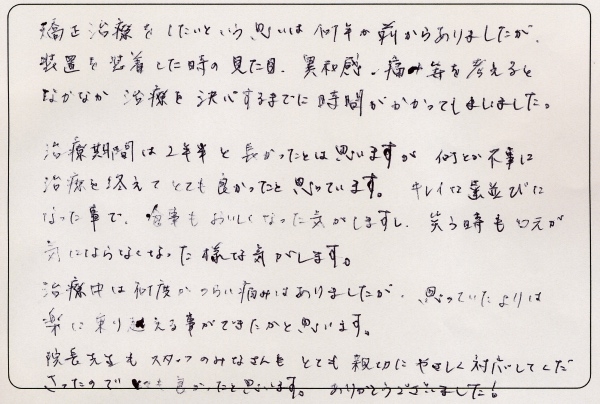 矯正治療をしたいという思いは何年か前からありましたが、
装置を装着した時の見た目、異和感、痛み等を考えると
なかなか治療を決心するまでに時間がかかってしまいました。
治療期間は2年半と長かったとは思いますが 何とか無事に
治療を終えてとても良かったと思っています。 キレイな歯並びに
なった事で、食事もおいしくなった気がしますし、笑う時も口元が
気にならなくなった様な気がします。
治療中は何度かつらい痛みはありましたが、思っていたよりは
楽に乗り越える事ができたかと思います。
院長先生もスタッフのみなさんもとても親切にやさしく対応してくだ
さったのでとても良かったと思います。 ありがとうございました!